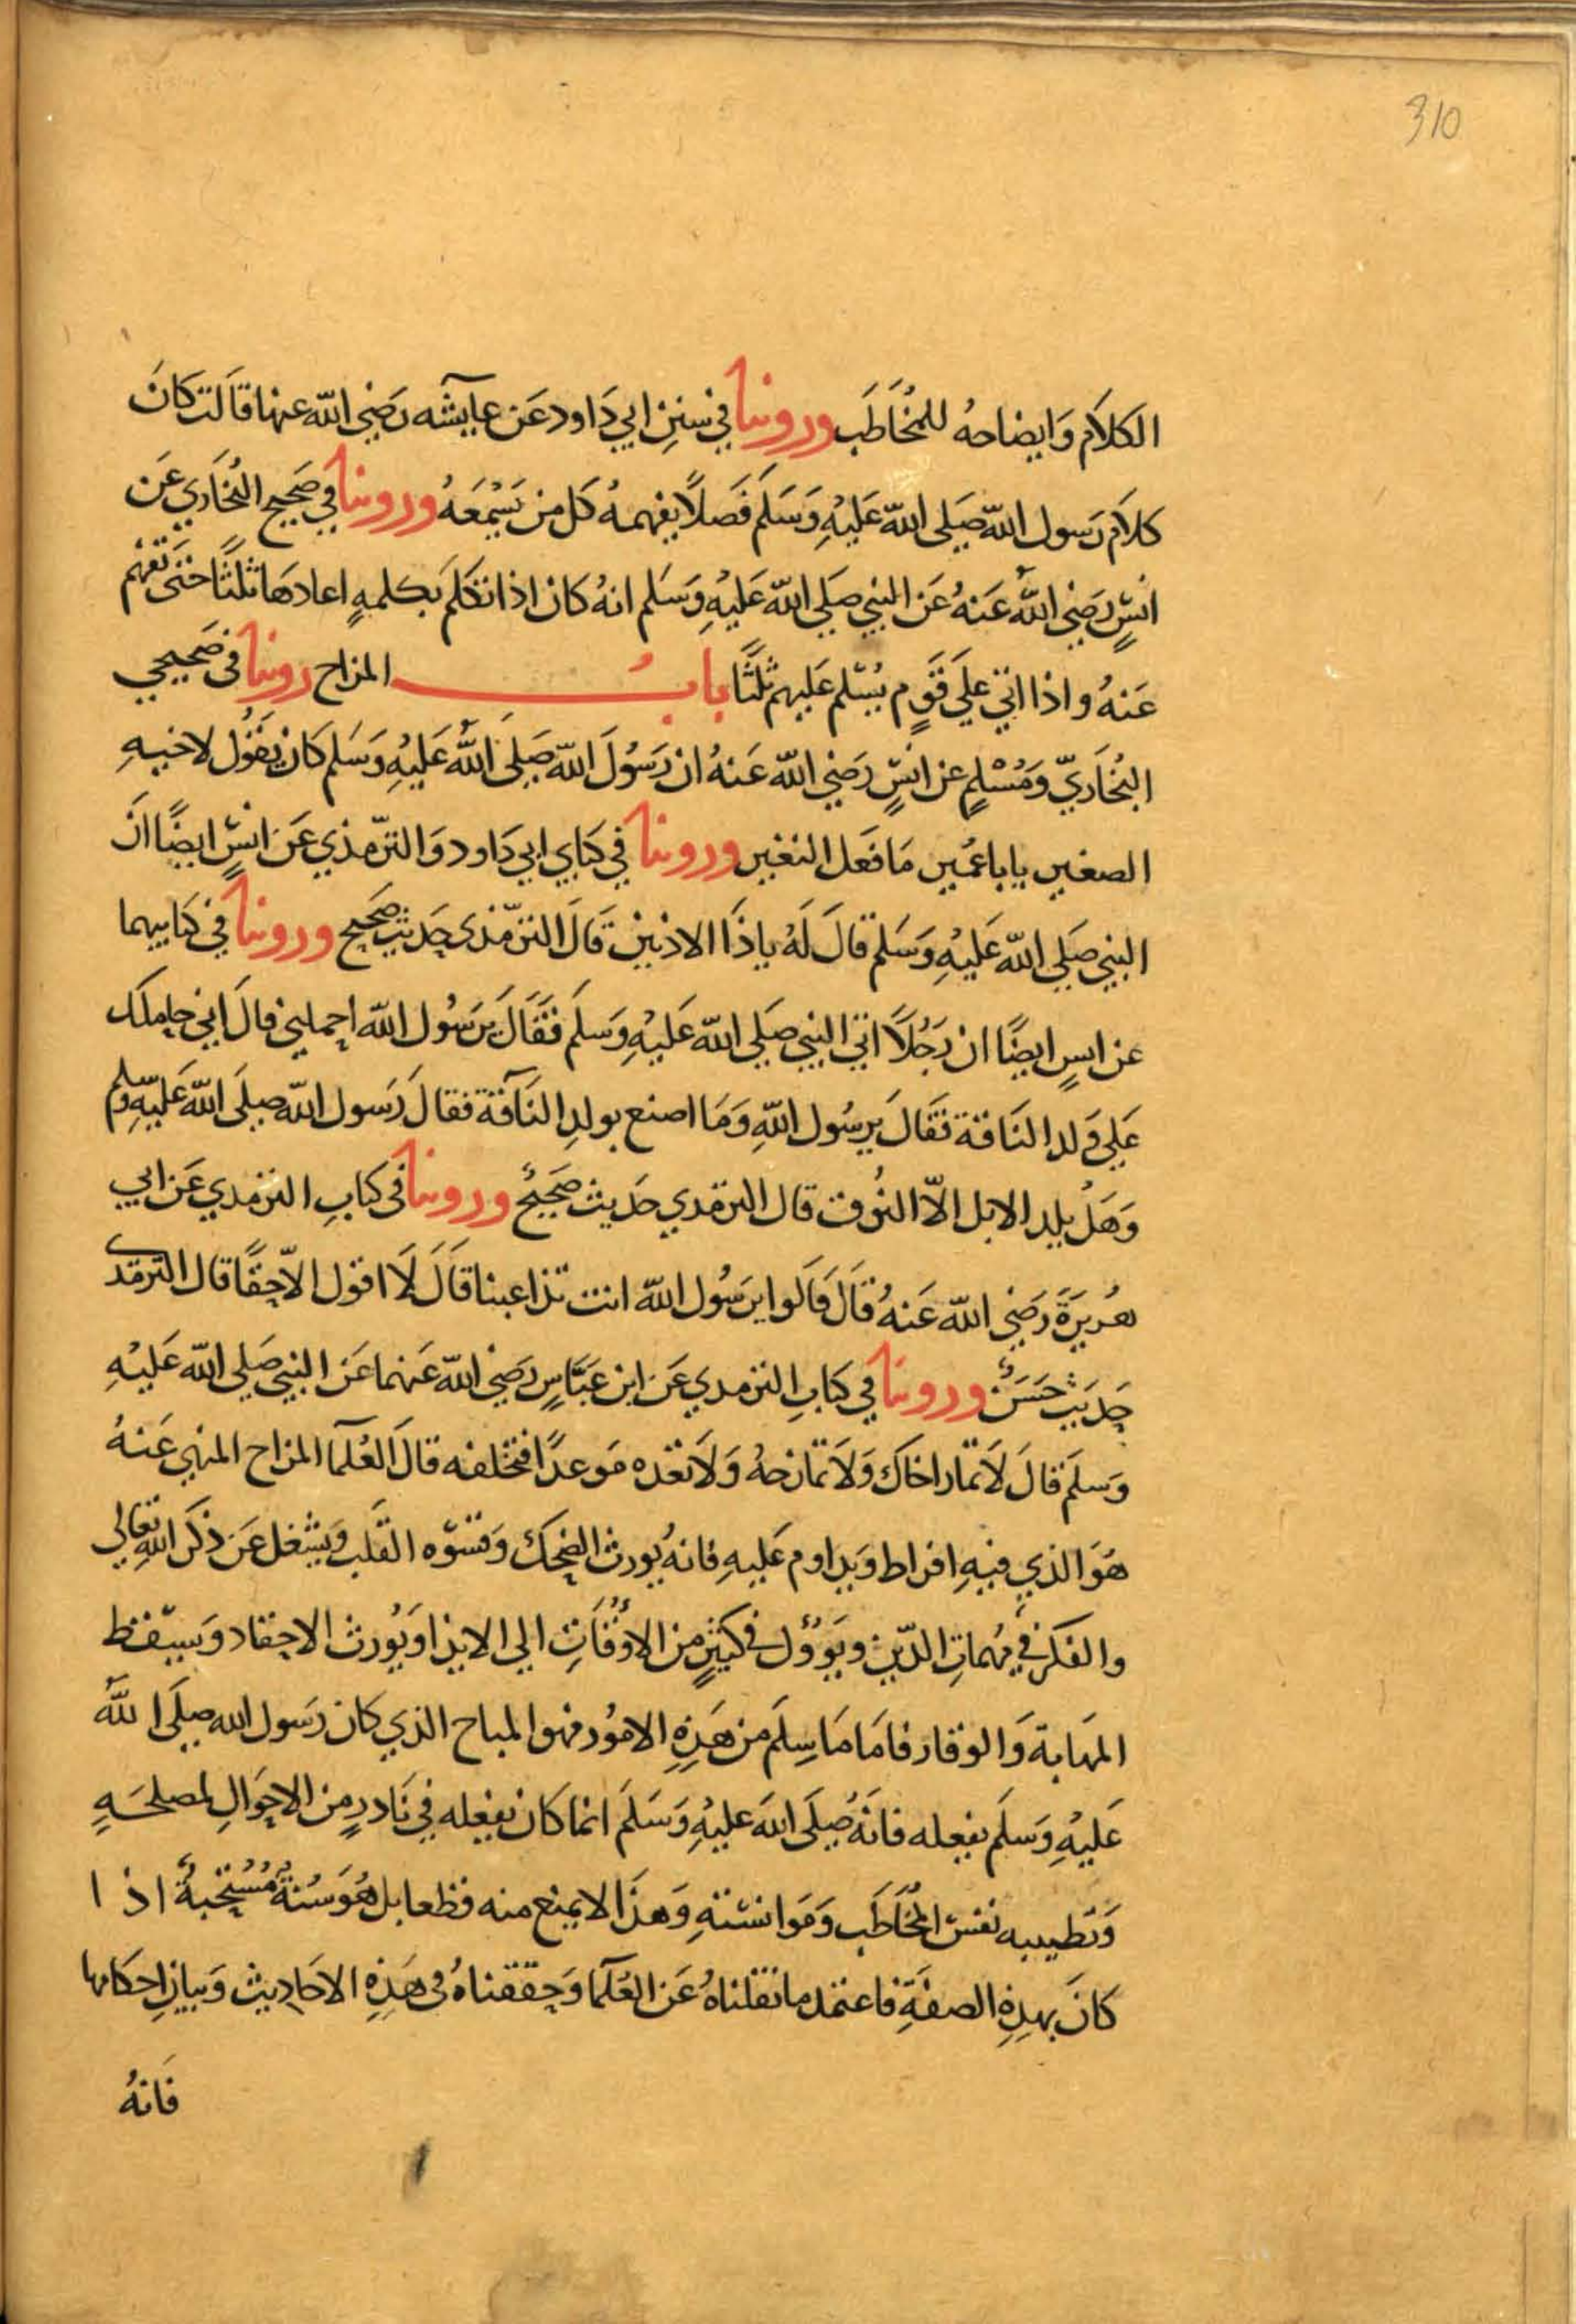 310
الكلام وايضاحه للمخاطب وروينا في سنن ابي داود عن عايشه رضي الله عنها قالت كان
كلام رسول الله صلى الله عليه وسلم فصلا يفهمه كل من يسمعه وروينا في صحيح البخاري عن
انس رضي الله عنه عن النبي صلى الله عليه وسلم انه كان اذا تكلم بكلمه اعادها ثلثا حتى تفهم
عنه واذا اتى على قوم يسلم عليهم ثلثا باب المزاح روينا في صحيحي
البخاري ومسلم عن انس رضي الله عنه ان رسول الله صلى الله عليه وسلم كان يقول لاخيه
الصغير يابا عمير ما فعل النغير وروينا في كتابي ابي داود والترمذي عن انس ايضا ان
النبي صلى الله عليه وسلم قال له ياذا الاذنين قال الترمذي حديث صحيح وروينا في كتابيهما
عن انس ايضا ان رجلا اتى النبي صلى الله عليه وسلم فقال يرسول الله احملني قال اني حاملك
على ولد الناقة فقال يرسول الله وما اصنع بولد الناقة فقال رسول الله صلى الله عليه وسلم
وهل يلد الابل الا النوق قال الترمذي حديث صحيح وروينا في كتاب الترمذي عن ابي
هريرة رضي الله عنه قال قالوا يرسول الله انت تداعبنا قال لا اقول الا حقا قال الترمذي
حديث حسن وروينا في كتاب الترمذي عن ابن عباس رضي الله عنهما عن النبي صلى الله عليه
وسلم قال لا تمار اخاك ولا تمازحه ولا تعده موعدا فتخلفه قال العلما المزاح المنهي عنه
هو الذي فيه افراط ويداوم عليه فانه يورث الضحك وقسوه القلب ويشغل عن ذكر الله تعالى
والفكر في مهمات الدين ويوول في كثير من الاوقات الى الايذا ويورث الاحقاد ويسقط
المهابة والوقار فاما ما سلم من هذه الامور فهو المباح الذي كان رسول الله صلى الله
عليه وسلم يفعله فانه صلى الله عليه وسلم انما كان يفعله في نادر من الاحوال لمصلحه
وتطييبه نفس المخاطب وموانسته وهذا لا يمنع منه قطعا بل هو سنة مستحبة اذا
كان بهذه الصفة فاعتمد ما نقلناه عن العلما وحققناه في هذه الاحاديث وبيان احكامها
فانه